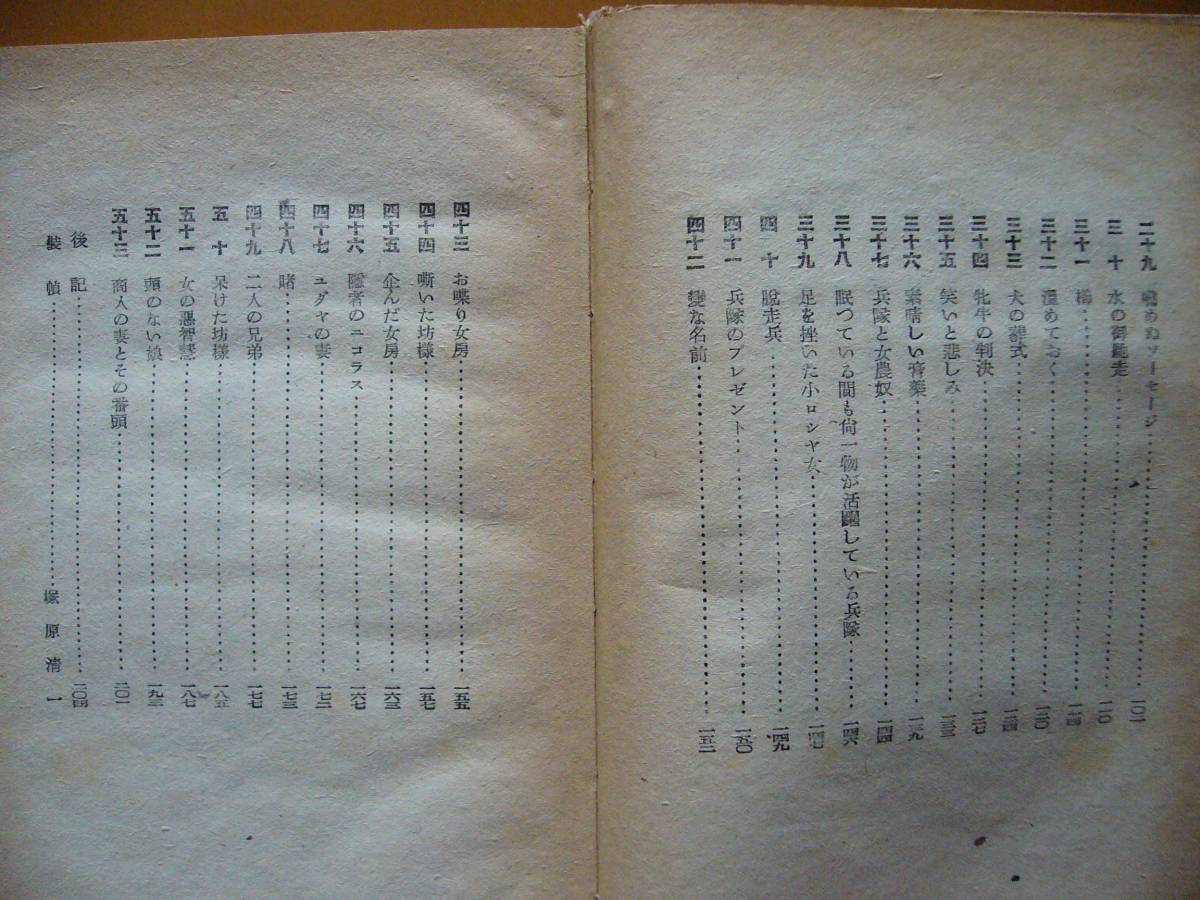 二十九 噛めぬソーセージ 一〇一
三十 水の御馳走 一一〇
三十一 楊 一一四
三十二 溜めておく 一二〇
三十三 犬の葬式 一二四
三十四 牝牛の判決 一二七
三十五 笑いと悲しみ 一三三
三十六 素晴しい音楽 一三九
三十七 兵隊と女農奴 一四四
三十八 眠つている間も尙一物が活躍している兵隊 一四六
三十九 足を挫いた小ロシヤ女 一四七
四十 脫走兵 一四九
四十一 兵隊のプレゼント 一五〇
四十二 變な名前 一五二
四十三 お喋り女房 一五五
四十四 嘶いた坊樣 一五七
四十五 企んだ女房 一六三
四十六 隱者のニコラス 一六七
四十七 ユダヤの妻 一七二
四十八 賭 一七三
四十九 二人の兄弟 一七七
五十 呆けた坊樣 一八五
五十一 女の悪智慧 一八七
五十二 頭のない娘 一九三
五十三 商人の妻とその番頭 二〇一
後記 二〇四
裝幀 塚原清一